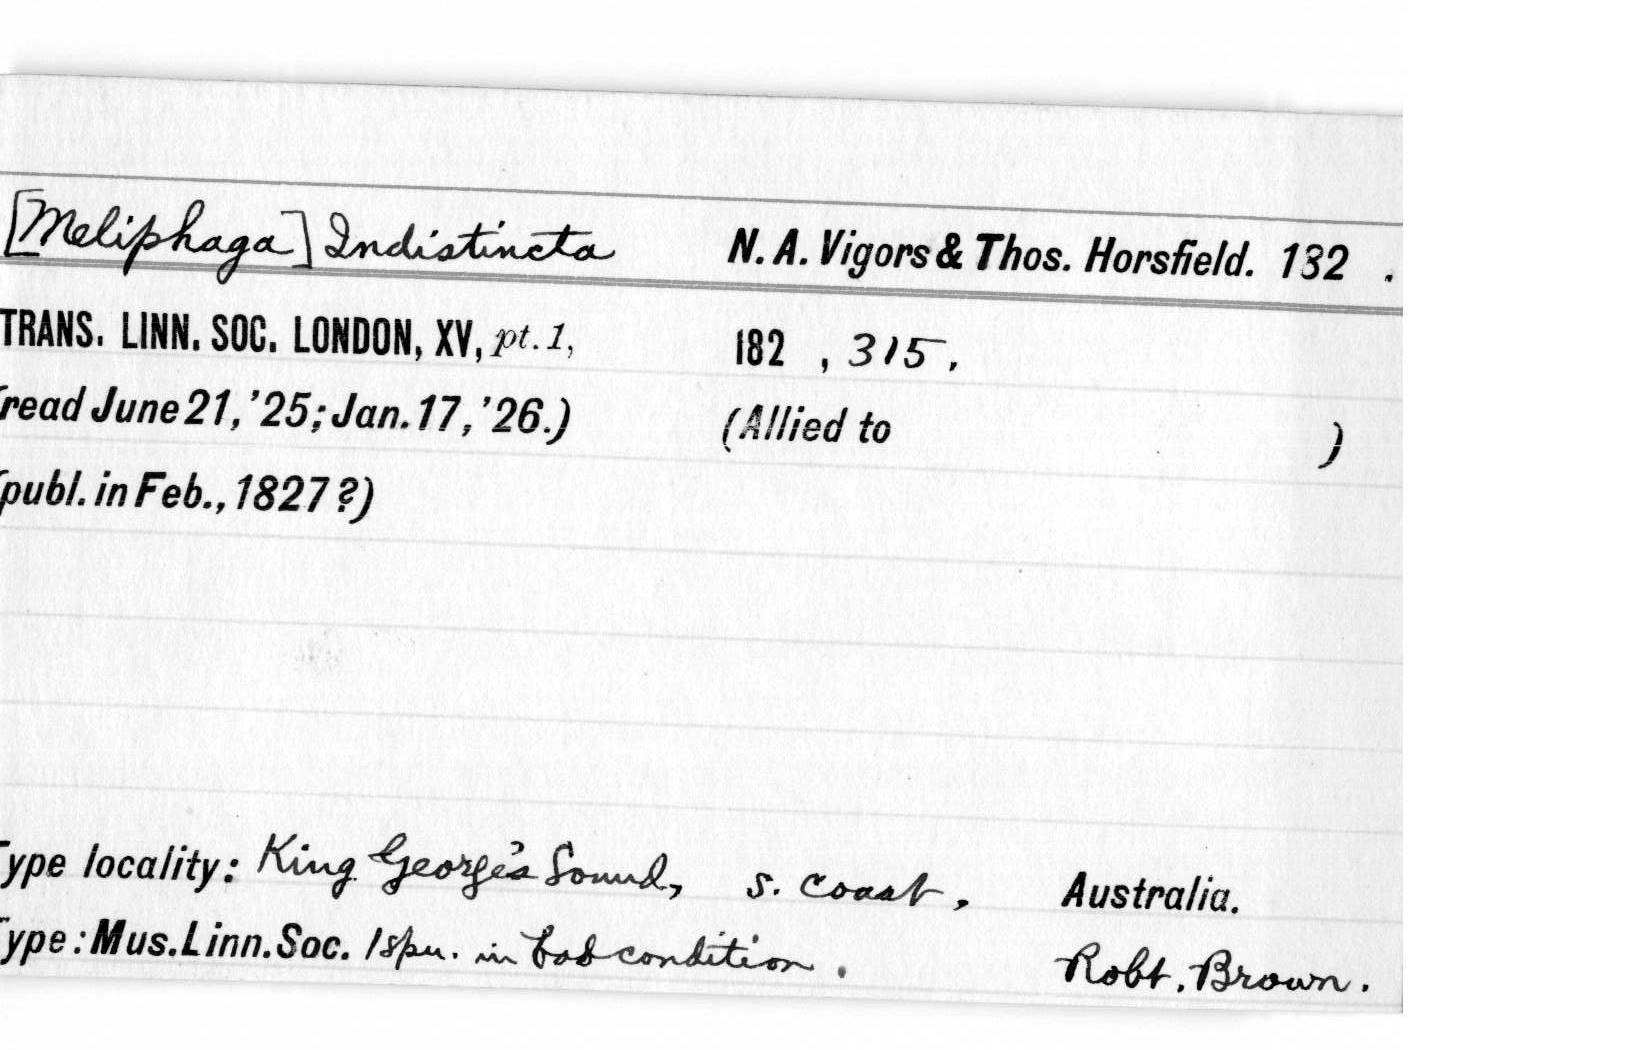 [Meliphaga] Indistincta N. A. Vigors & Thos. Horsfield. 132 .
TRANS. LINN. SOC. LONDON, XV, pt. 1, 182 , 315.
(read June 21, '25; Jan. 17, '26.) (Allied to )
(publ. in Feb., 1827?)
Type locality: King George's Sound, s. coast, Australia.
Type: Mus. Linn. Soc. 1 spn. in bad condition. Robt. Brown.